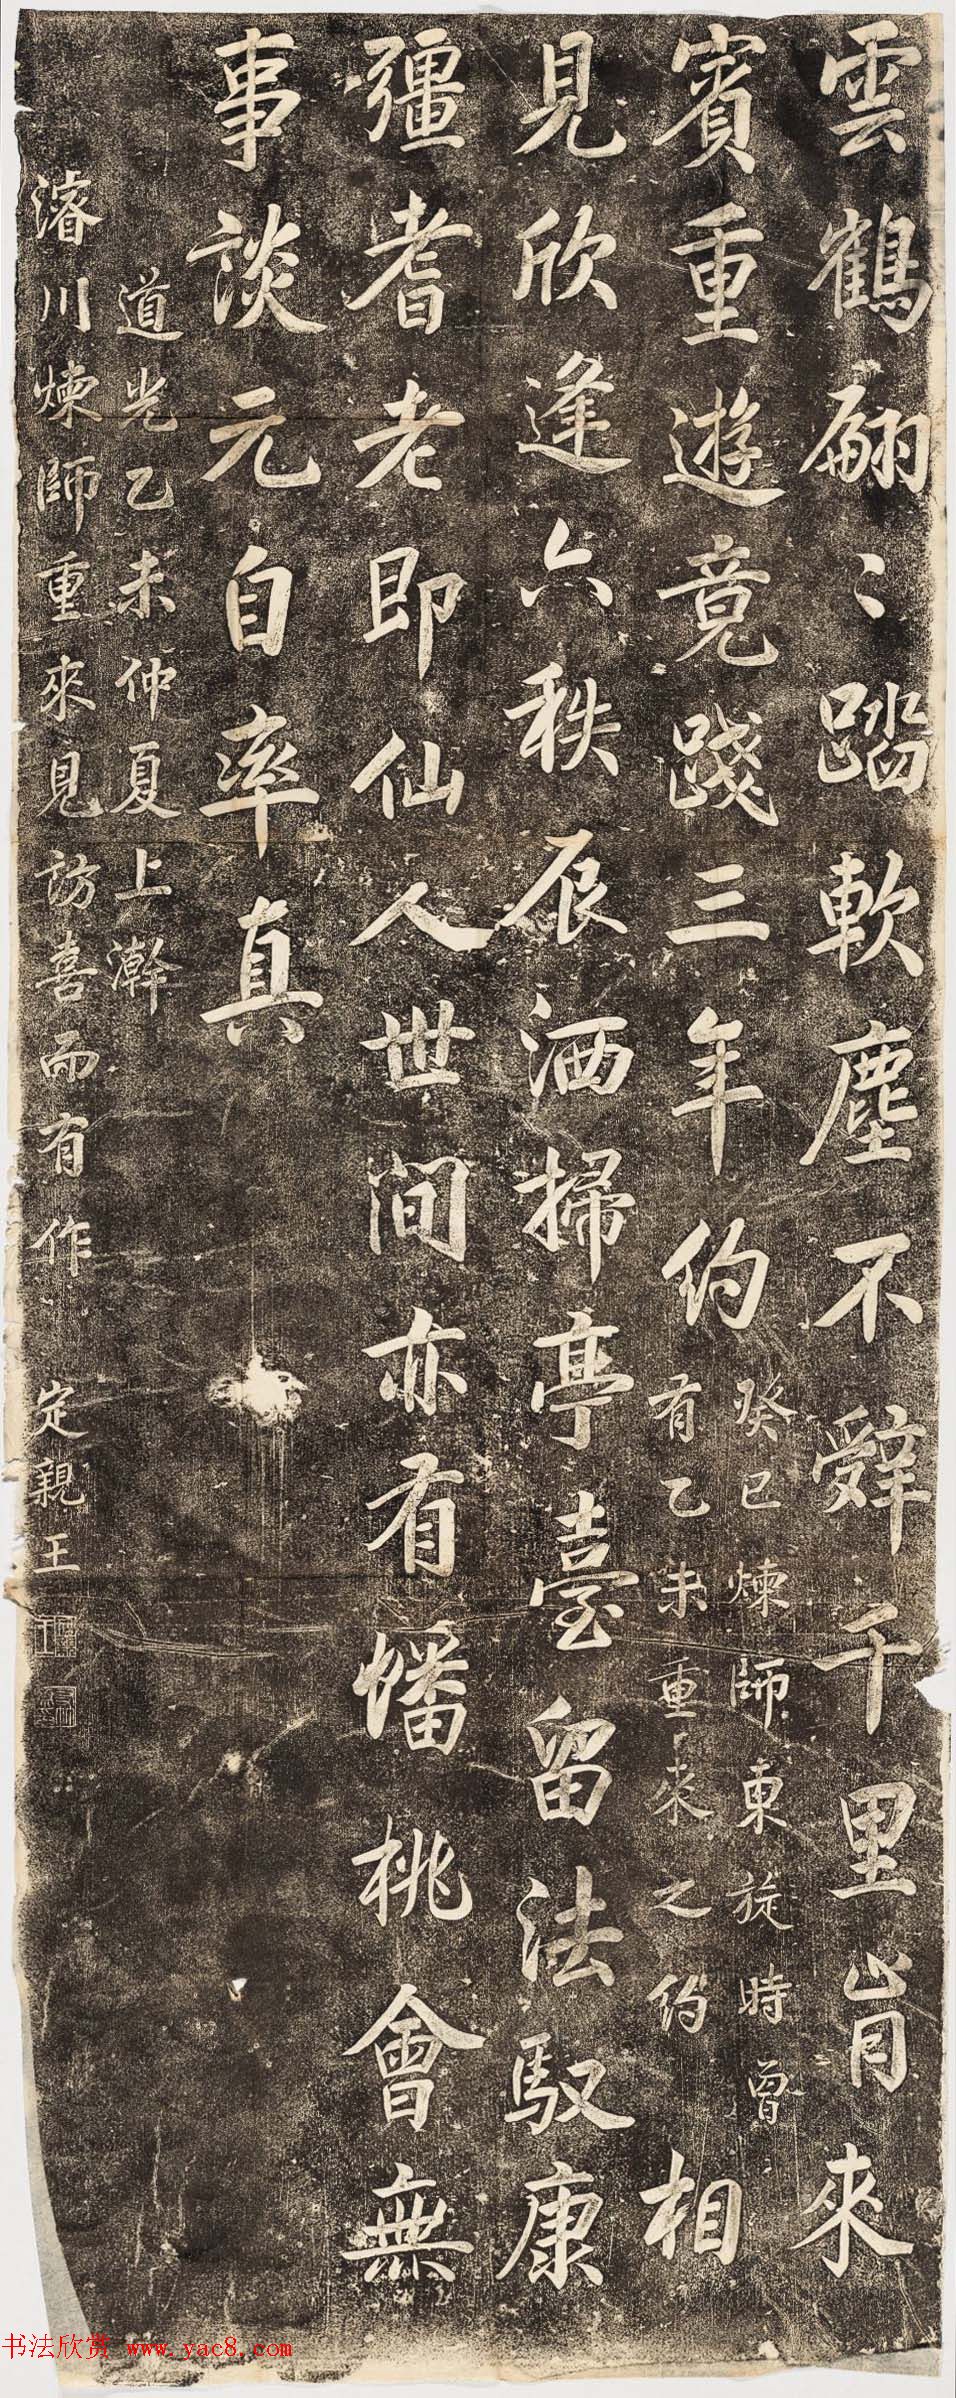 雲鶴翩〻踏軟塵不辤千里肯來
賓重遊竟踐三年約
癸巳煉師東旋時曾
有乙未重來之約
相
見欣逢六秩辰洒掃亭臺留法馭康
彊耆老即仙人世間亦有蟠桃會無
事談元自率真
道光乙未仲夏上澣
濬川煉師重來見訪喜而有作 定親王
书法欣赏 www.yac8.com